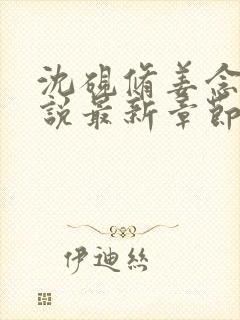 沈硯脩姜念
說最新章節
伊迪絲